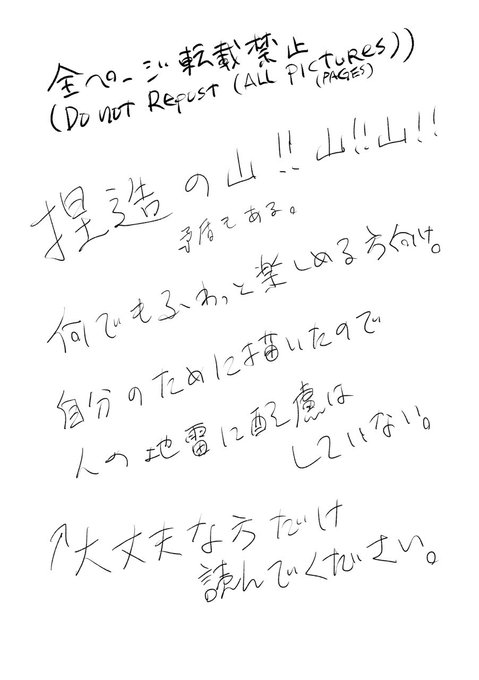 全ページ転載禁止
(Do not Repost (ALL PICTURES))
(PAGES)
捏造の山!!山!!山!!
矛盾もある。
何でもふわっと楽しめる方向け。
自分のために描いたので
人の地雷に配慮は
していない。
↑大丈夫な方だけ
読んでください。